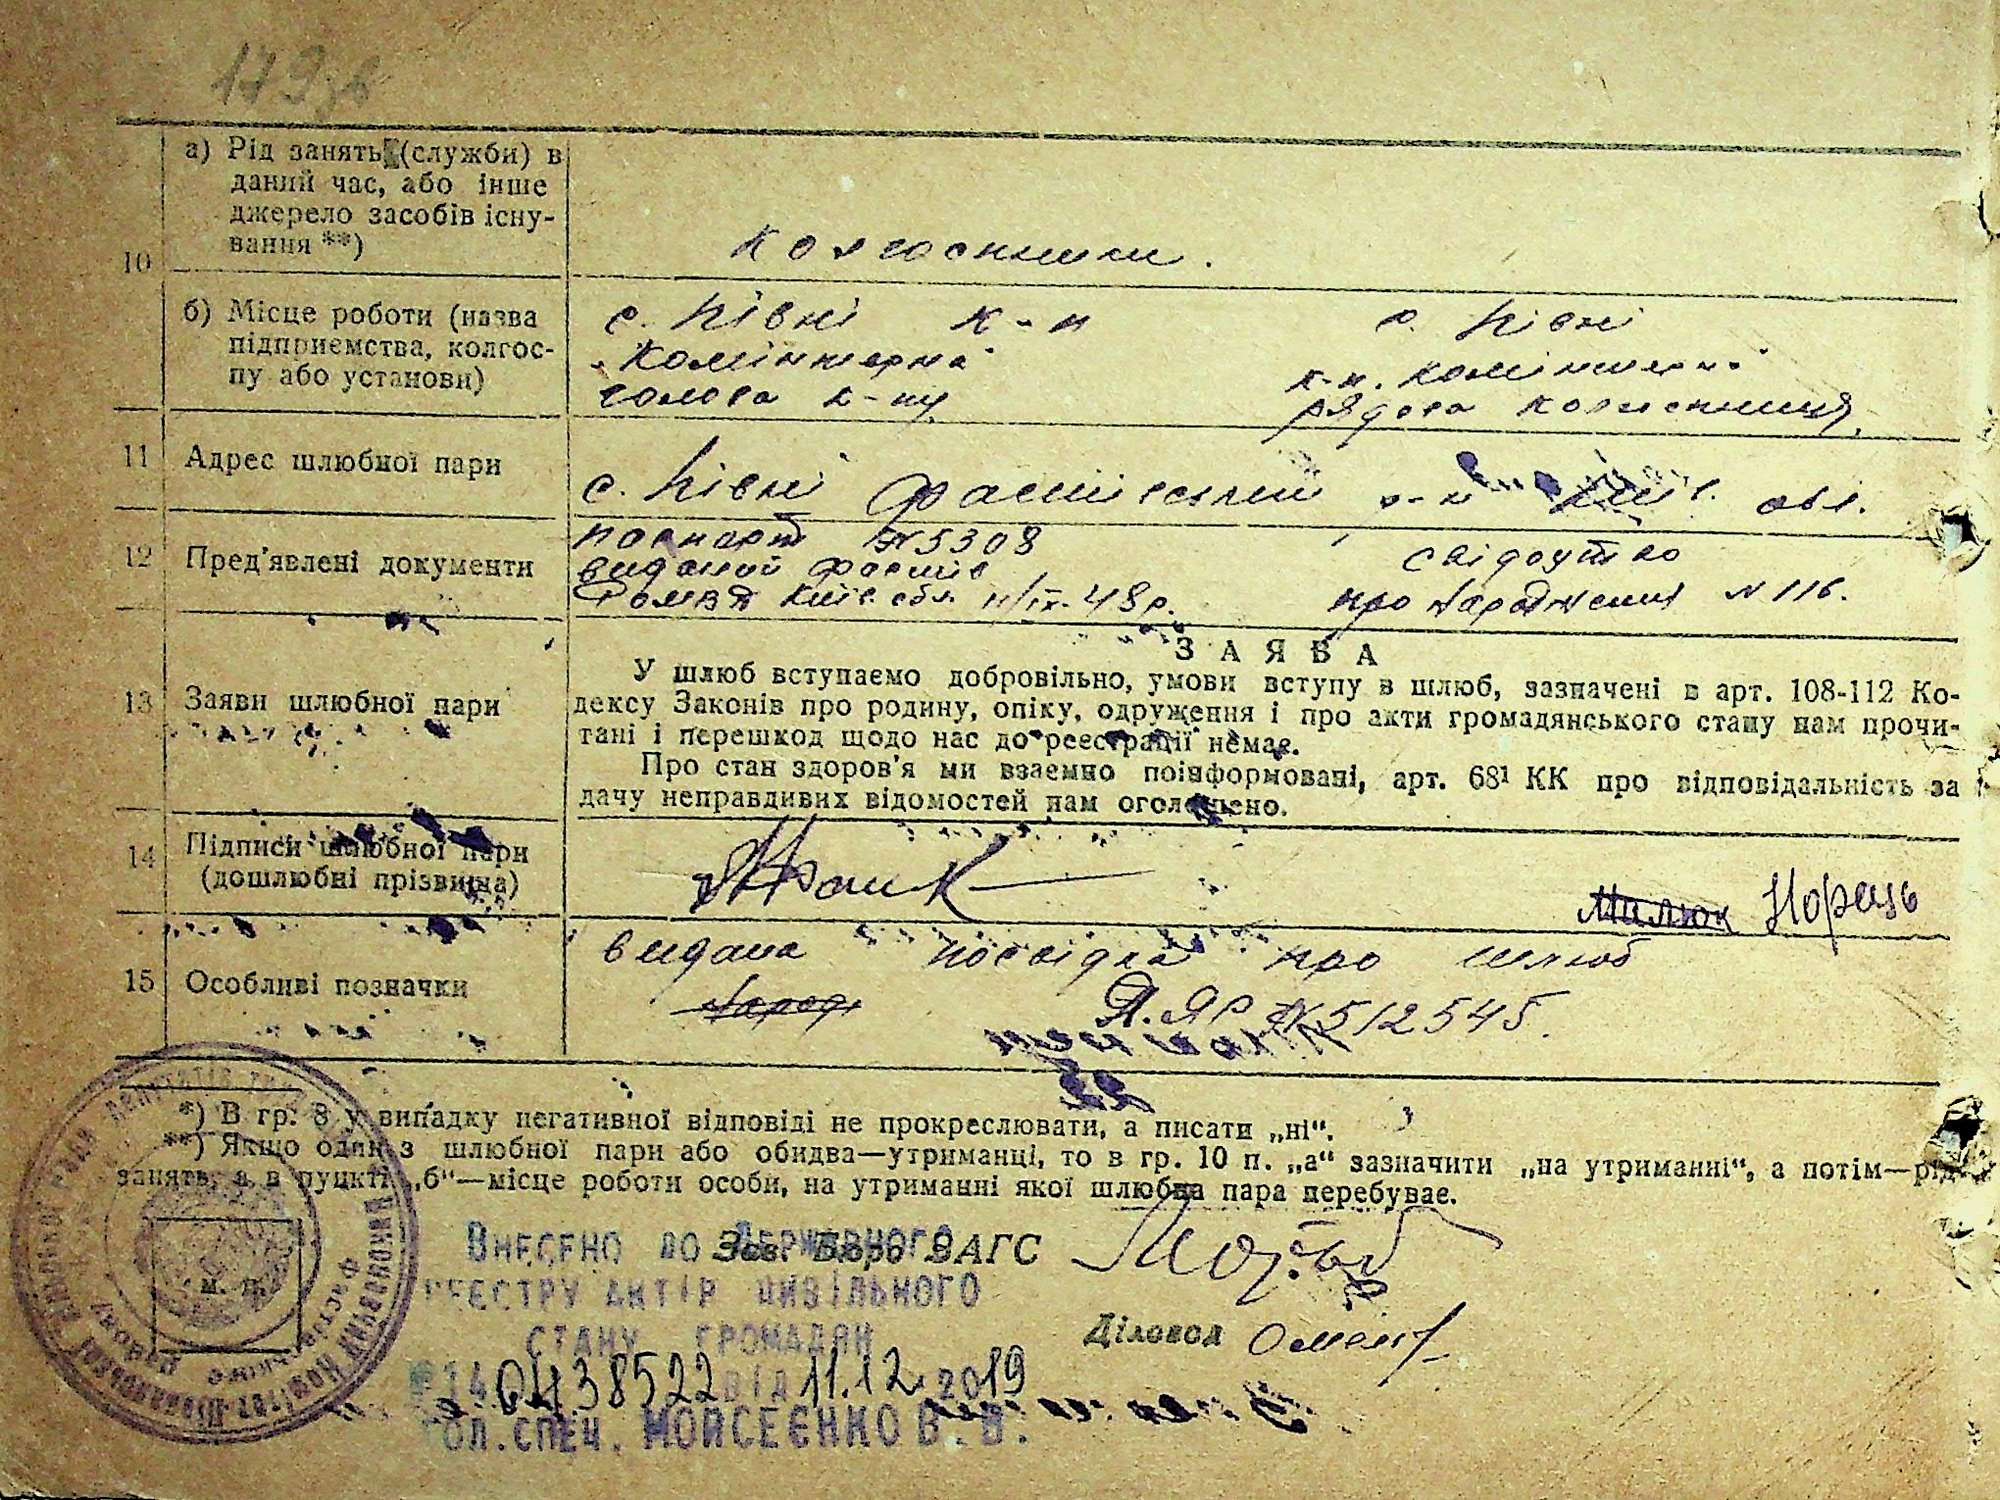 179зв
10
а) Рід занять (служби) в
даний час, або інше
джерело засобів існу-
вання **)
колгоспники.
б) Місце роботи (назва
підприємства, колгос-
пу або установи)
с. Півні к-п
"Комінтерна"
голова к-пу
с. Півні
к-п. Комінтерна
рядова колгоспниця
11 Адрес шлюбної пари
с. Півні Фастівський р-н Київ. обл.
12 Пред'явлені документи
паспорт №5308
виданий Фастів
РОМВД Київ. обл. 11/IX-48р.
свідоутво
про народження №116.
13 Заяви шлюбної пари
ЗАЯВА
У шлюб вступаємо добровільно, умови вступу в шлюб, зазначені в арт. 108-112 Ко-
дексу Законів про родину, опіку, одруження і про акти громадянського стану нам прочи-
тані і перешкод щодо нас до реєстрації немає.
Про стан здоров'я ми взаємно поінформовані, арт. 68¹ КК про відповідальність за
дачу неправдивих відомостей нам оголошено.
14 Підписи шлюбної пари
(дошлюбні прізвища)
15 Особливі позначки
видана посвідка про шлюб
№512545.
*) В гр. 8 у випадку негативної відповіді не прокреслювати, а писати „ні“.
**) Якщо один з шлюбної пари або обидва—утриманці, то в гр. 10 п. „а“ зазначити „на утриманні“, а потім—рід
занять, а в пункті „б“—місце роботи особи, на утриманні якої шлюбна пара перебуває.
Зав. Бюро ЗАГС
Внесено до Державного
реєстру актів цивільного
стану громадян
Діловод
м. п.
від 11.12.2019
гол. спец. Мойсеєнко В. В.